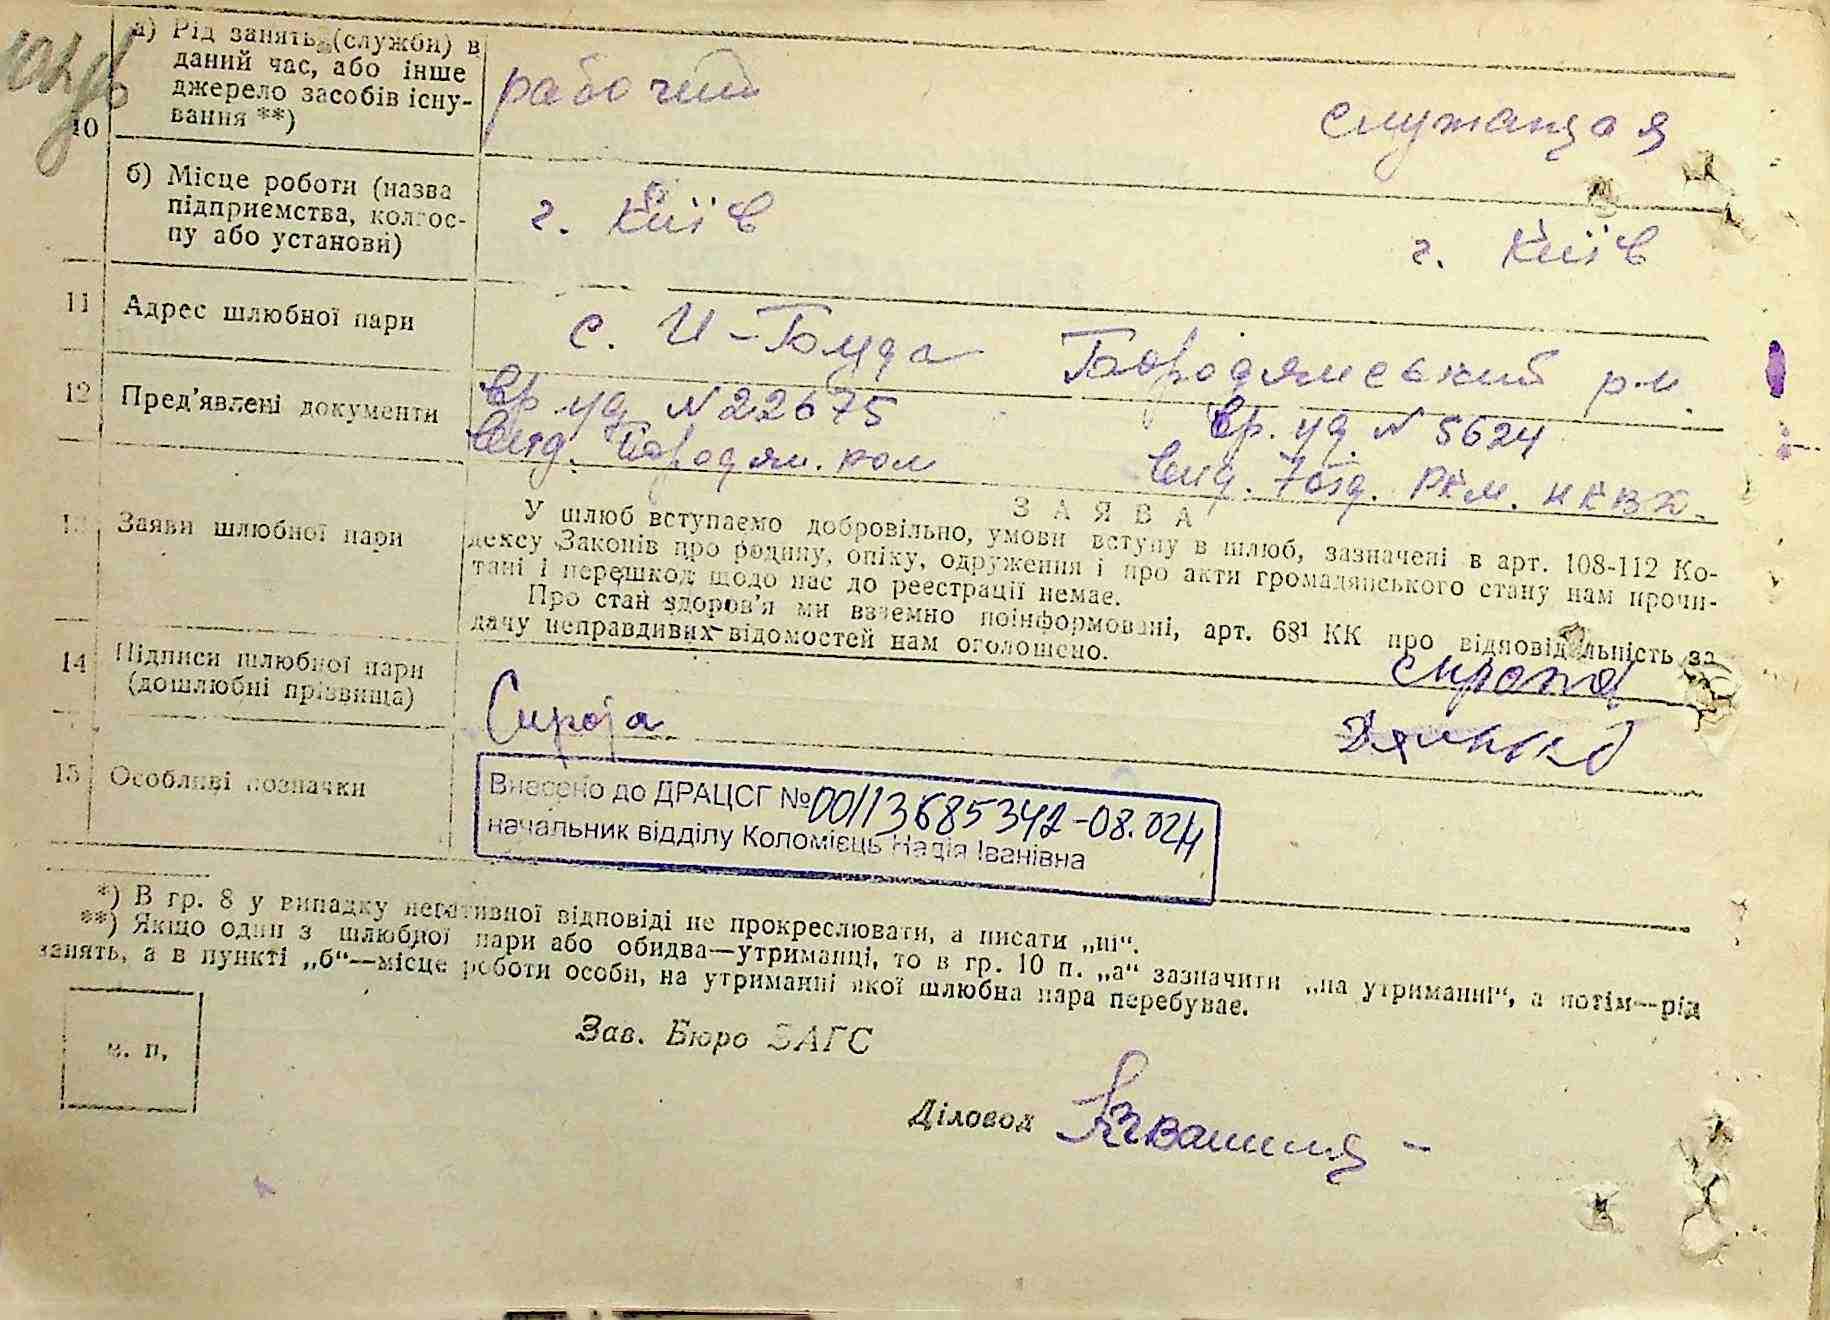 а) Рід занять (служби) в
даний час, або інше
джерело засобів існу-
вання **)
10
рабочий
служащая
б) Місце роботи (назва
підприємства, колгос-
пу або установи)
г. Київ
г. Київ
11 Адрес шлюбної пари
с. Н-Гомда Бородянський р-н.
12 Пред'явлені документи
Вр. уд. N 22675
Вр. уд. N 5624
Вид. Бородян.
Вид. 7 отд. РКМ. НКВД.
13 Заяви шлюбної пари
ЗАЯВА
У шлюб вступаємо добровільно, умови вступу в шлюб, зазначені в арт. 108-112 Ко-
дексу Законів про родину, опіку, одруження і про акти громадянського стану нам прочи-
тані і перешкод щодо нас до реєстрації немає.
Про стан здоров'я ми взаємно поінформовані, арт. 68¹ КК про відповідальність за
дачу неправдивих відомостей нам оголошено.
14 Підписи шлюбної пари
(дошлюбні прізвища)
Сирота
15 Особливі позначки
Внесено до ДРАЦСГ №00113685342-08.024
начальник відділу Коломієць Надія Іванівна
*) В гр. 8 у випадку негативної відповіді не прокреслювати, а писати „ні“.
**) Якщо один з шлюбної пари або обидва—утриманці, то в гр. 10 п. „а“ зазначити „на утриманні“, а потім—рід
занять, а в пункті „б“—місце роботи особи, на утриманні якої шлюбна пара перебуває.
м. п.
Зав. Бюро ЗАГС
Діловод